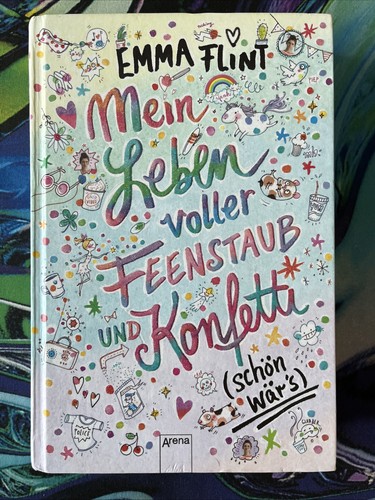 EMMA FLINT
Mein
Leben
voller
FEENSTAUB
UND Konfetti
(schön
wär's)
Arena